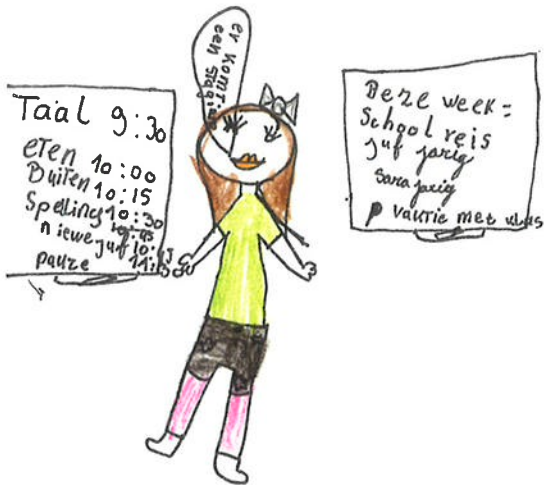 er komt
een
Taal 9:30
eten 10:00
Buiten 10:15
Spelling 10:30
niewe juf 10:45
pauze
Deze week:
School reis
juf jarig
Sara jarig
met klas